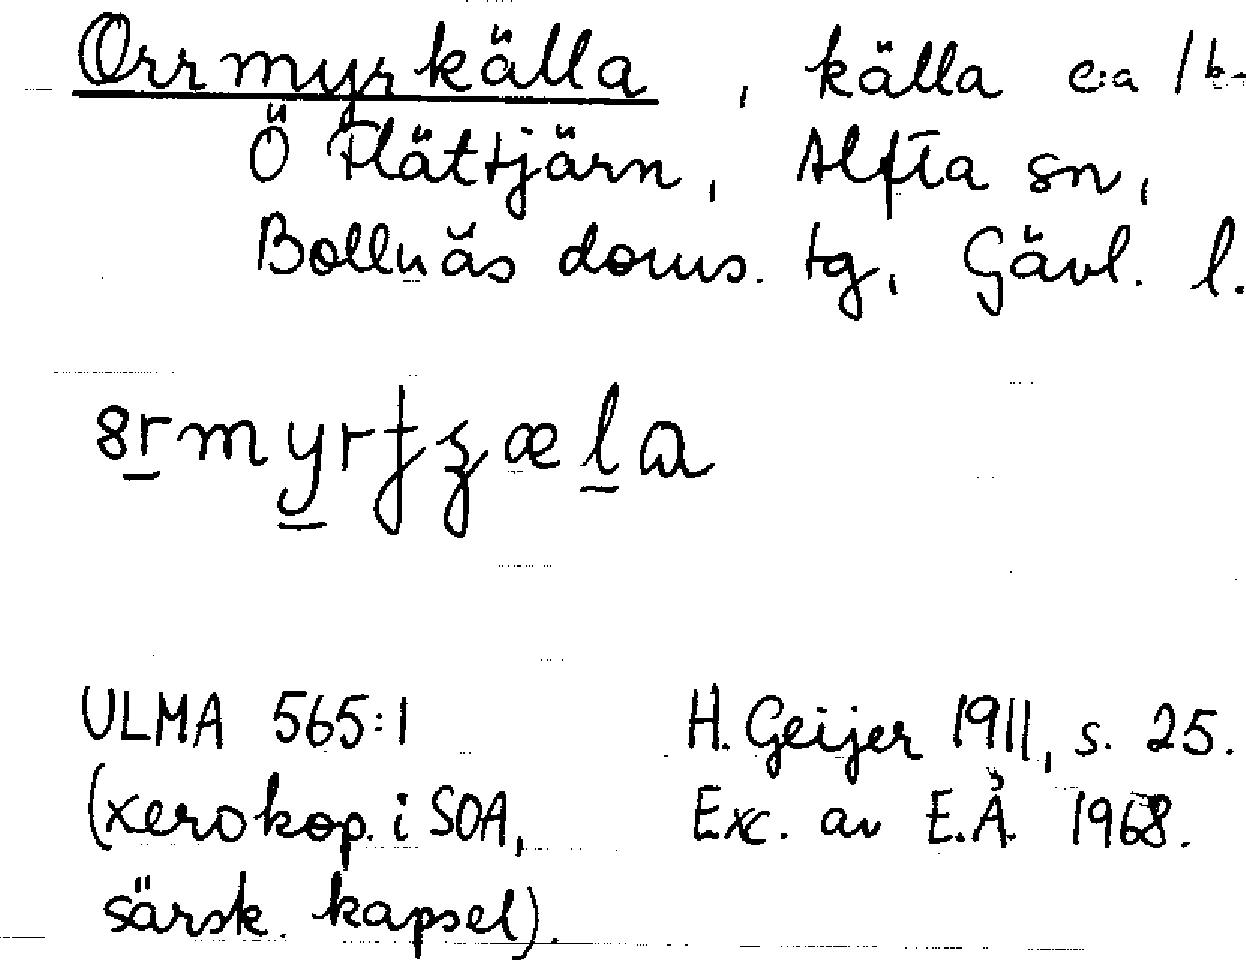 Orrmyrkälla, källa c:a 1
Ö Plättjärn, Alfta sn,
Bollnäs doms. tg, Gävl. l.
ULMA 565:1 H. Geijer 1911, s. 25.
(xerokop. i SOA, Exc. av E.Å. 1968.
särsk. kapsel).